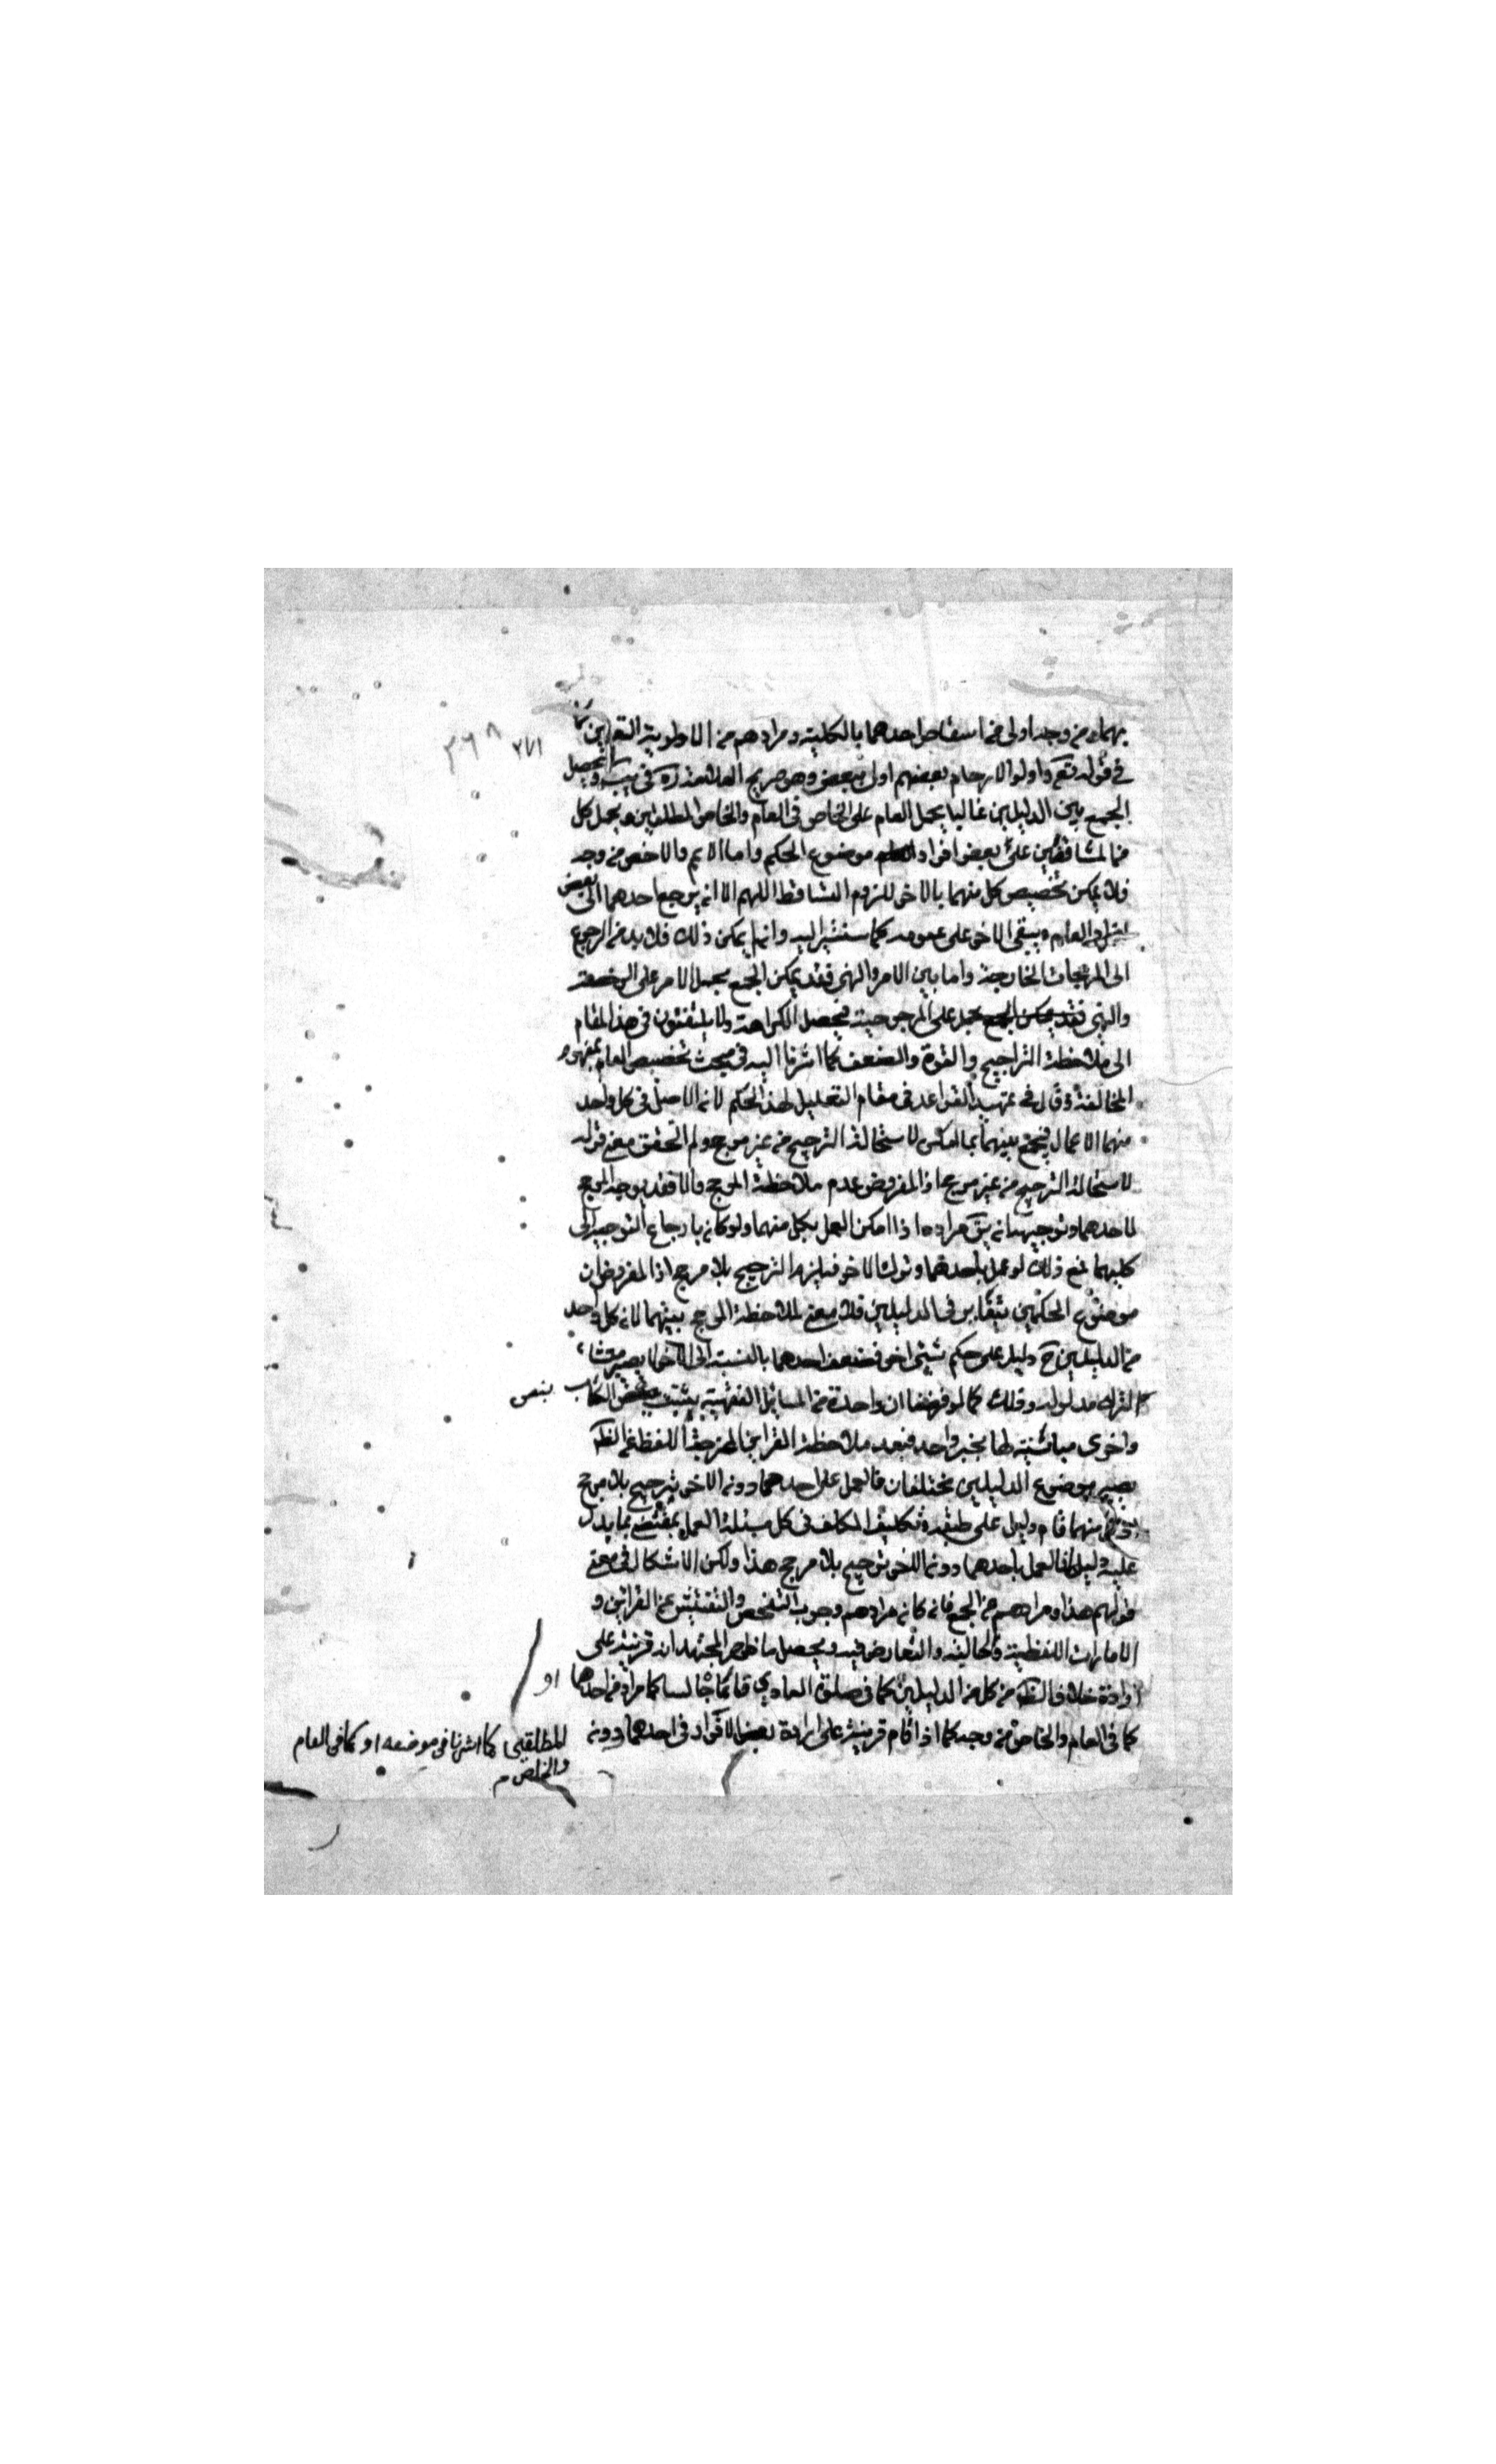 بهما من وجه اولى من اسقاط احدهما بالكلية ومرادهم من الاولوية التعين كما
في قوله تع واولوا الارحام بعضهم اولى ببعض وهو صريح العلامة ره في يب ويحصل
الجمع بين الدليلين غالبا بحمل العام على الخاص في العام والخاص المطلقين وبحمل كل
من المتنافيين على بعض افراد موضوع الحكم واما الاعم والاخص من وجه
فلا يمكن تخصيص كل منهما بالاخر للزوم التساقط اللهم الا ان يرجع احدهما الى بعض
افراد العام ويبقى الاخر على عمومه كما سنشير اليه وان لم يمكن ذلك فلا بد من الرجوع
الى المرجحات الخارجة واما بين الامر والنهي فقد يمكن الجمع بحمل الامر على الرخصة
والنهي على المرجوحية فيحصل الكراهة ولا يلتفتون في هذا المقام
الى ملاحظة التراجيح والقوة والضعف كما اشرنا اليه في مبحث تخصيص العام بمفهوم
المخالفة وقال في تمهيد القواعد في مقام التعليل لهذا الحكم لان الاصل في كل واحد
منهما الاعمال فيجمع بينهما بما امكن لاستحالة الترجيح من غير مرجح ولم اتحقق معنى قوله
لاستحالة الترجيح من غير مرجح اذ المفروض عدم ملاحظة المرجح والا فقد يوجد المرجح
لاحدهما وتوجيهه انه يق مراده اذا امكن العمل بكل منهما ولو كان بارجاع التوجيه الى
كليهما فمع ذلك لو عمل باحدهما وترك الاخر فيلزم الترجيح بلا مرجح اذ المفروض ان
موضوع الحكمين يتغاير في الدليلين فلا معنى لملاحظة المرجح بينهما لان كل واحد
من الدليلين ح دليل على حكم شيء اخر فضعف احدهما بالنسبة الى الآخر لا يصير منشاء
لترك مدلوله وذلك كما لو فرضنا ان واحدة من المسائل الفقهية يثبت بنص الكتاب
واخرى مباينة لها بخبر واحد فبعد ملاحظة القرائن المخرجة اللفظ عن الظ
يصير موضوع الدليلين مختلفان فالعمل على احدهما دون الاخر ترجيح بلا مرجح
منهما قام دليل على طبقه وتكليف المكلف في كل مسئلة العمل بمقتضى ما يدل
عليه دليلها فالعمل باحدهما دون الاخر ترجيح بلا مرجح هذا ولكن الاشكال في معنى
قولهم هذا ومرادهم من الجمع فانه كان مرادهم وجوب التفحص والتفتيش عن القرائن و
الامارات اللفظية والحالية والتعارض فيه ويحصل ما ظهر للمجتهد ان قرينة على
ارادة خلاف الظ من كل من الدليلين كما في صلوة العاري قائما جالسا كما مر او من احدهما او
كما في العام والخاص من وجه كما اذا قام قرينة على ارادة بعض الافراد في احدهما دون
المطلقين كما اشرنا في موضعه او كما في العام
والخاص م
بنص
٣٧١
٣٦٨